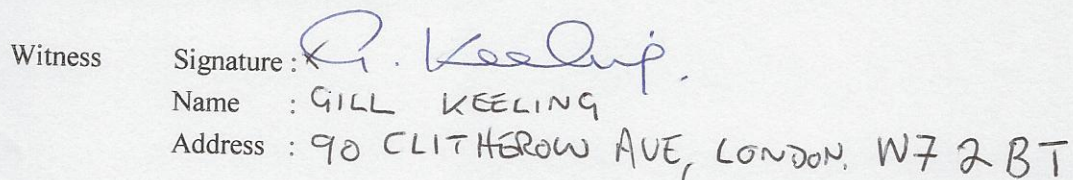 Witness Signature : x G. Keeling.
Name : GILL KEELING
Address : 90 CLITHEROW AVE, LONDON. W7 2BT